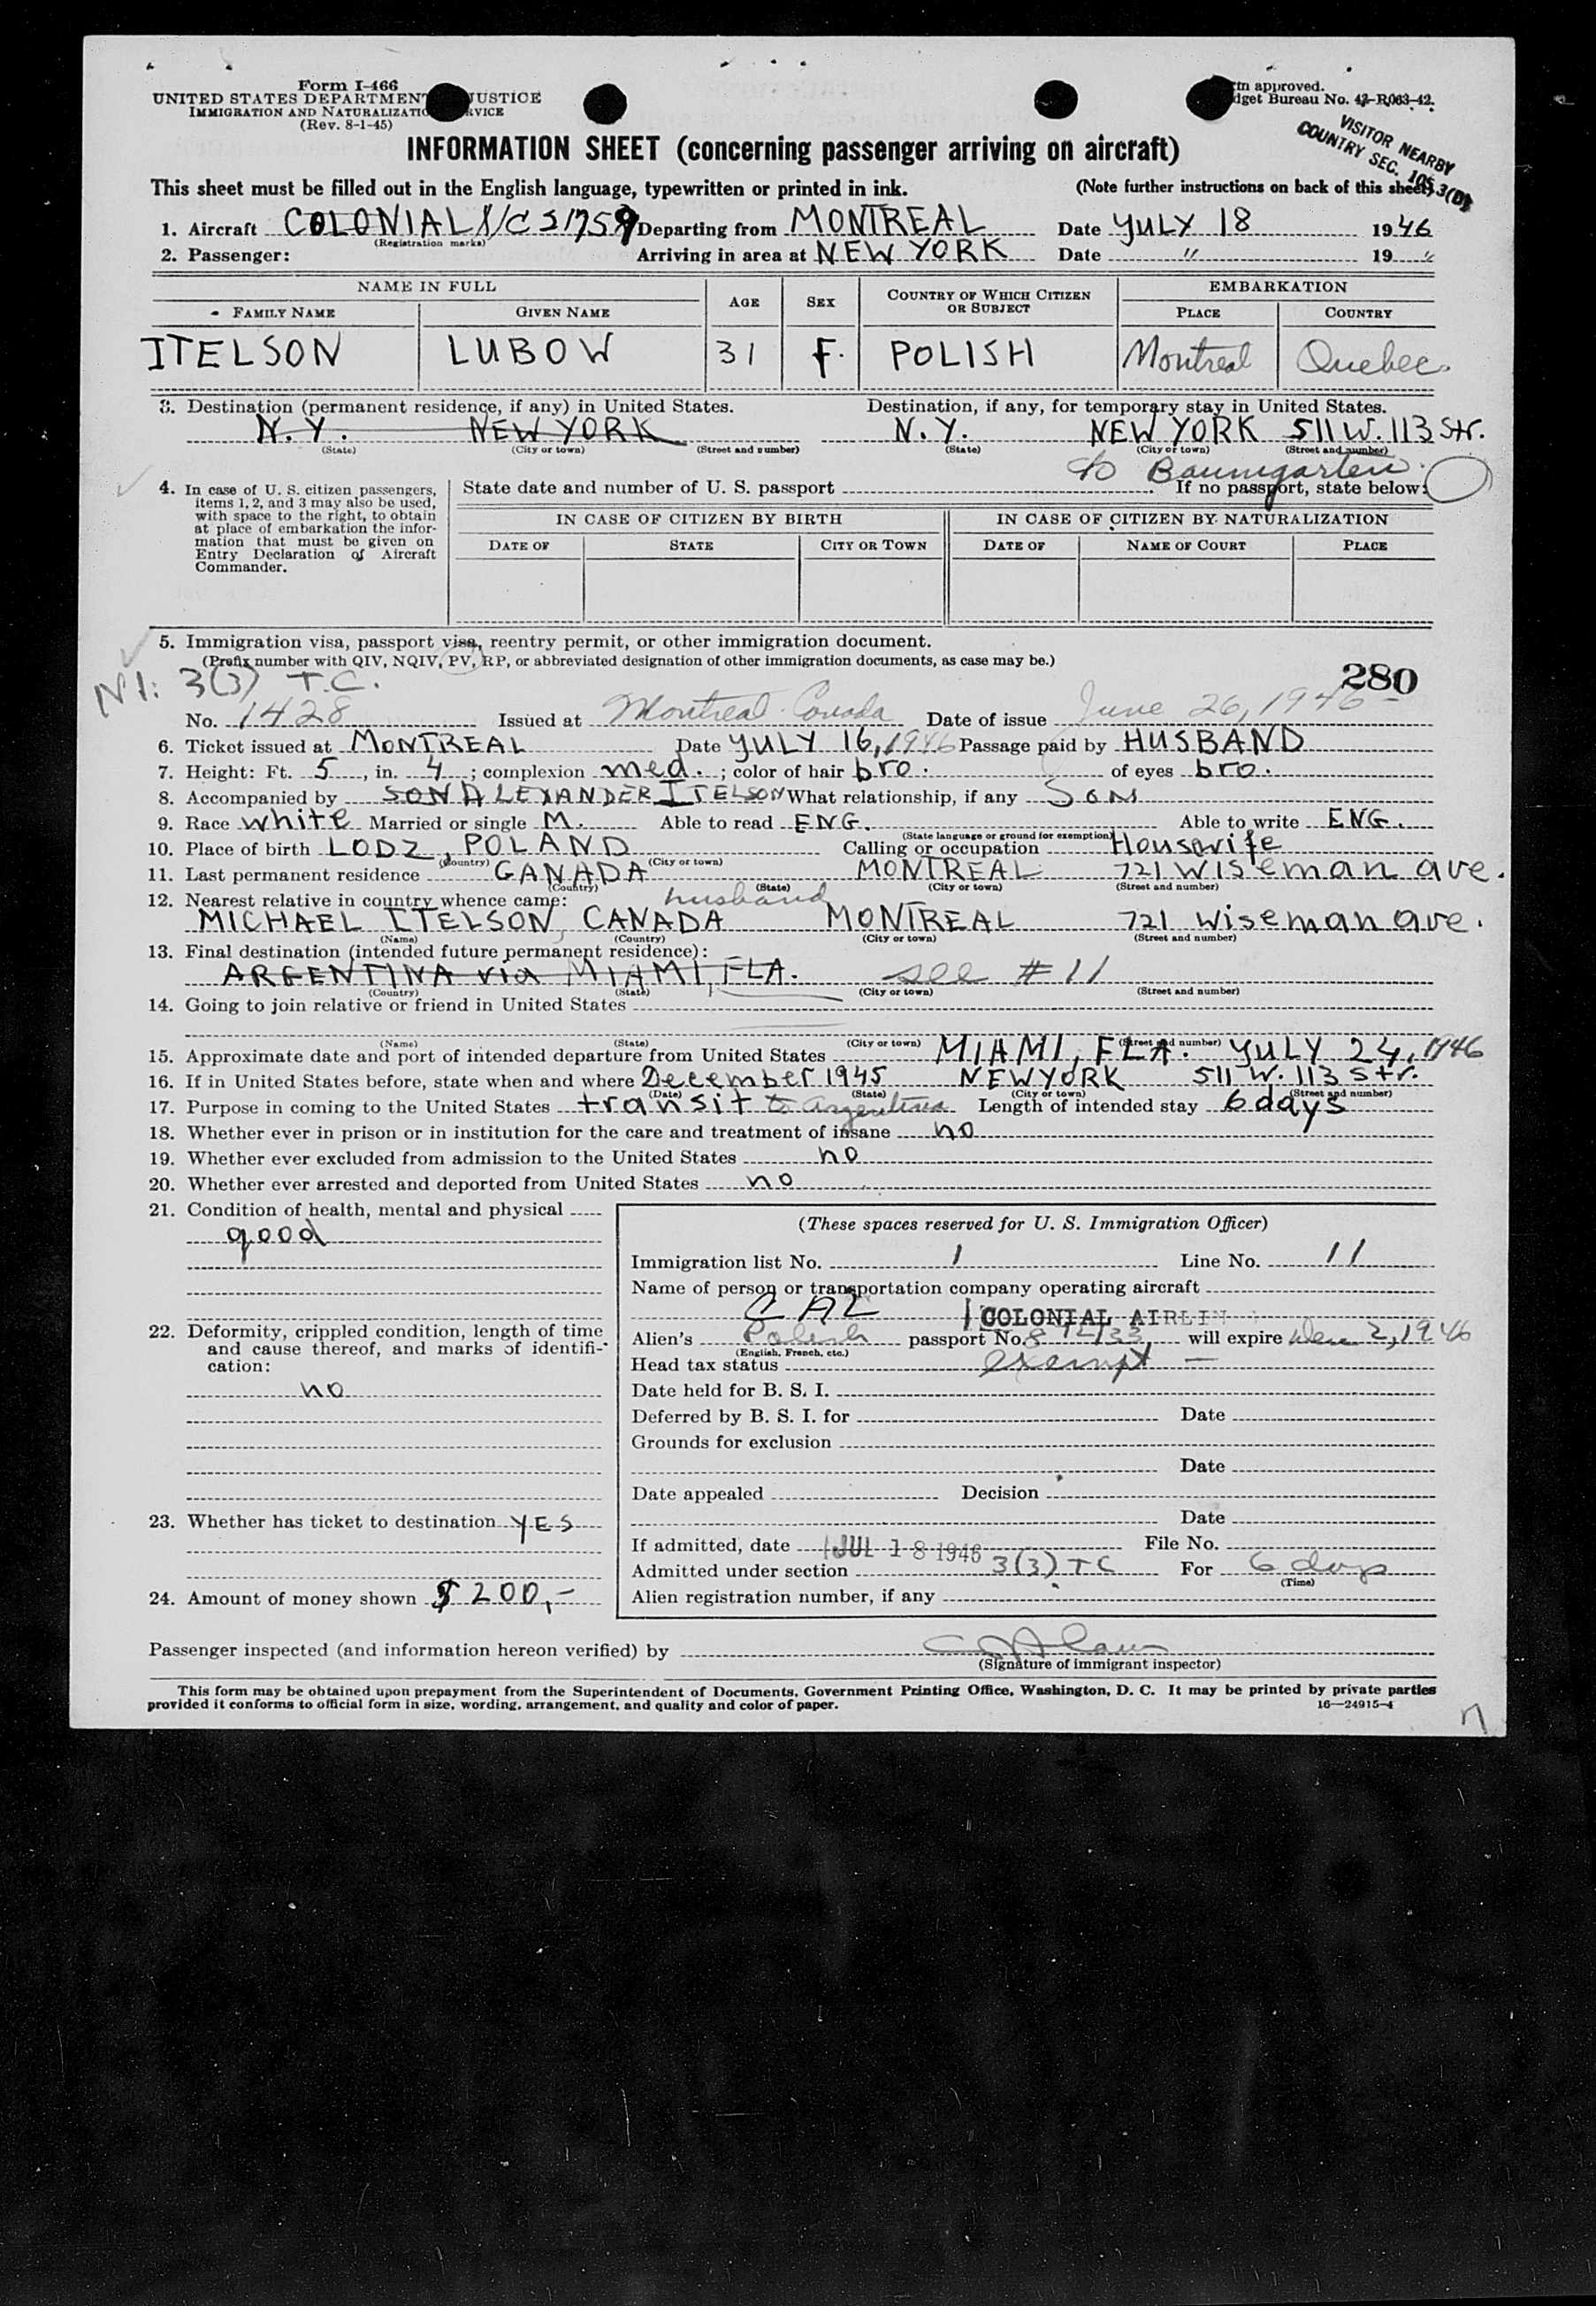 Form I-466
UNITED STATES DEPARTMENT JUSTICE
IMMIGRATION AND NATURALIZATIO RVICE
(Rev. 8-1-45)
rm approved.
dget Bureau No. 43-R063-42.
VISITOR NEARBY
COUNTRY SEC. 3(D)
INFORMATION SHEET (concerning passenger arriving on aircraft)
This sheet must be filled out in the English language, typewritten or printed in ink. (Note further instructions on back of this sheet)
1. Aircraft COLONIAL N/C 21759 Departing from MONTREAL Date YULY 18 1946
(Registration marks)
2. Passenger: Arriving in area at NEW YORK Date " 19 "
NAME IN FULL AGE SEX COUNTRY OF WHICH CITIZEN OR SUBJECT EMBARKATION
FAMILY NAME GIVEN NAME PLACE COUNTRY
ITELSON LUBOW 31 F. POLISH Montreal Quebec.
3. Destination (permanent residence, if any) in United States. Destination, if any, for temporary stay in United States.
N.Y. NEW YORK N.Y. NEW YORK 511 W. 113 Str.
(State) (City or town) (Street and number) (State) (City or town) (Street and number)
c/o Baumgarten
4. In case of U. S. citizen passengers, items 1, 2, and 3 may also be used, with space to the right, to obtain at place of embarkation the information that must be given on Entry Declaration of Aircraft Commander.
State date and number of U. S. passport . If no passport, state below:
IN CASE OF CITIZEN BY BIRTH IN CASE OF CITIZEN BY NATURALIZATION
DATE OF STATE CITY OR TOWN DATE OF NAME OF COURT PLACE
5. Immigration visa, passport visa, reentry permit, or other immigration document.
(Prefix number with QIV, NQIV, PV, RP, or abbreviated designation of other immigration documents, as case may be.)
280
3(3) T.C.
No. 1428 Issued at Montreal Canada Date of issue June 26, 1946
6. Ticket issued at MONTREAL Date YULY 16, 1946 Passage paid by HUSBAND
7. Height: Ft. 5, in. 4; complexion med.; color of hair bro. of eyes bro.
8. Accompanied by SON ALEXANDER ITELSON What relationship, if any SON
9. Race white Married or single M. Able to read ENG. Able to write ENG.
(State language or ground for exemption)
10. Place of birth LODZ, POLAND Calling or occupation Housewife
(Country) (City or town)
11. Last permanent residence CANADA MONTREAL 721 Wiseman ave.
(Country) (State) (City or town) (Street and number)
12. Nearest relative in country whence came: husband
MICHAEL ITELSON, CANADA MONTREAL 721 Wiseman ave.
(Name) (Country) (City or town) (Street and number)
13. Final destination (intended future permanent residence):
ARGENTINA via MIAMI, FLA. see #11
(Country) (State) (City or town) (Street and number)
14. Going to join relative or friend in United States
(Name) (State) (City or town) (Street and number)
15. Approximate date and port of intended departure from United States MIAMI, FLA. YULY 24, 1946
16. If in United States before, state when and where December 1945 NEW YORK 511 W. 113 Str.
(Date) (State) (City or town) (Street and number)
17. Purpose in coming to the United States transit to Argentina Length of intended stay 6 days
18. Whether ever in prison or in institution for the care and treatment of insane no
19. Whether ever excluded from admission to the United States no
20. Whether ever arrested and deported from United States no
21. Condition of health, mental and physical
good
22. Deformity, crippled condition, length of time and cause thereof, and marks of identification:
no
23. Whether has ticket to destination YES
24. Amount of money shown $ 200,-
(These spaces reserved for U. S. Immigration Officer)
Immigration list No. 1 Line No. 11
Name of person or transportation company operating aircraft
CAL COLONIAL AIRLIN
Alien's Polish passport No. will expire Dec 2, 1946
(English, French, etc.)
Head tax status exempt —
Date held for B. S. I.
Deferred by B. S. I. for Date
Grounds for exclusion
Date
Date appealed Decision
Date
If admitted, date JUL 18 1946 File No.
Admitted under section 3(3) TC For 6 days
(Time)
Alien registration number, if any
Passenger inspected (and information hereon verified) by
(Signature of immigrant inspector)
This form may be obtained upon prepayment from the Superintendent of Documents, Government Printing Office, Washington, D. C. It may be printed by private parties
provided it conforms to official form in size, wording, arrangement, and quality and color of paper. 16—24915-4